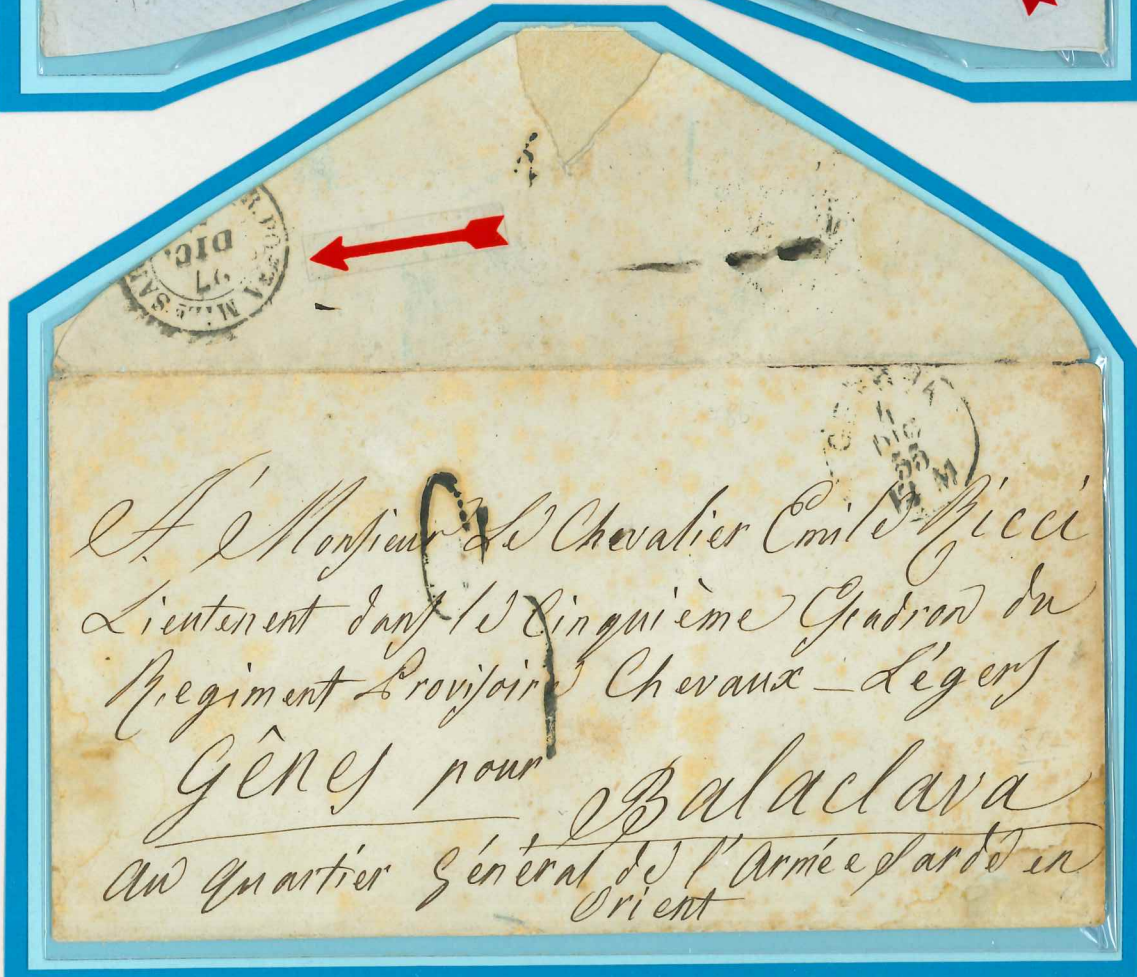 R. POSTA MIL. SAR
27
DIC.
GENOVA
4
DIC
55
M
A Monsieur Le Chevalier Emile Ricci
Lieutenent dans le Cinquième Escadron du
Regiment Provisoire Chevaux - Légers
Gênes pour Balaclava
au quartier général de l'Armée Sarde en
Orient